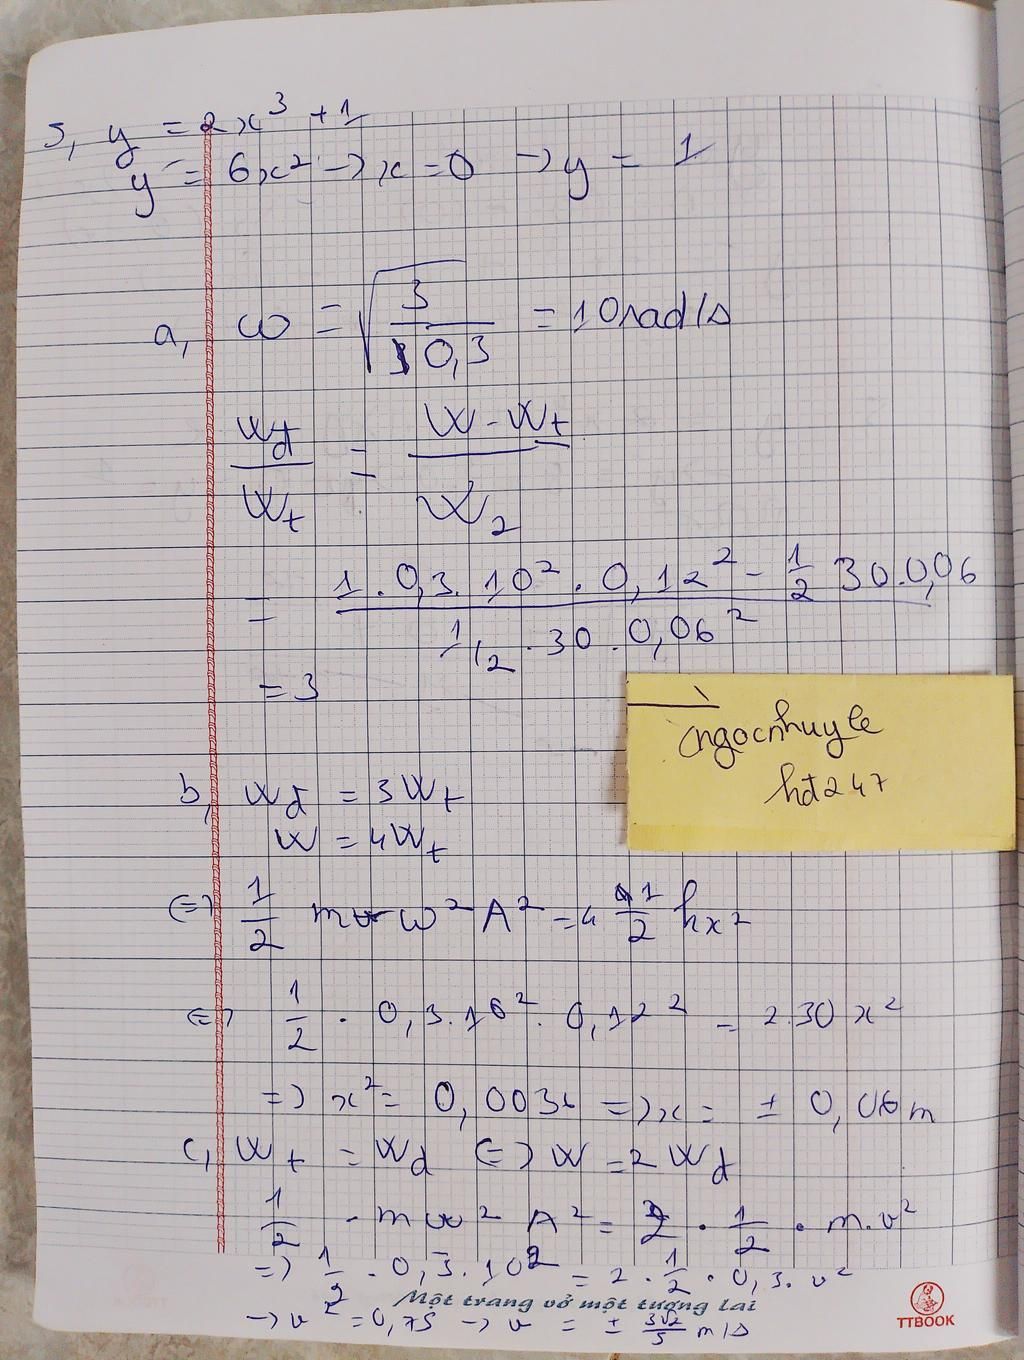 5, y = 2x³ + 1
y' = 6x² → x = 0 → y = 1
a, ω = √(3/0,3) = 10 rad/s
Wđ/Wt = (W - Wt)/W2
= (1 . 0,3 . 10² . 0,12² - 1/2 30 . 0,06)/(1/2 . 30 . 0,06²)
= 3
ngocnhuyle
hđ247
b, Wđ = 3Wt
W = 4Wt
⇔ 1/2 m ω² A² = 4 1/2 kx²
⇔ 1/2 . 0,3 . 10² . 0,12² = 2.30 x²
=> x² = 0,0036 => x = ± 0,06 m
c, Wt = Wđ ⇔ W = 2 Wđ
1/2 . m ω² A² = 2 . 1/2 . m . v²
=> 1/2 . 0,3 . 10² = 2 . 1/2 . 0,3 . v²
Một trang vở một tương lai
TTBOOK
→ v² = 0,75 → v = ± 3√2/5 m/s
TTBOOK